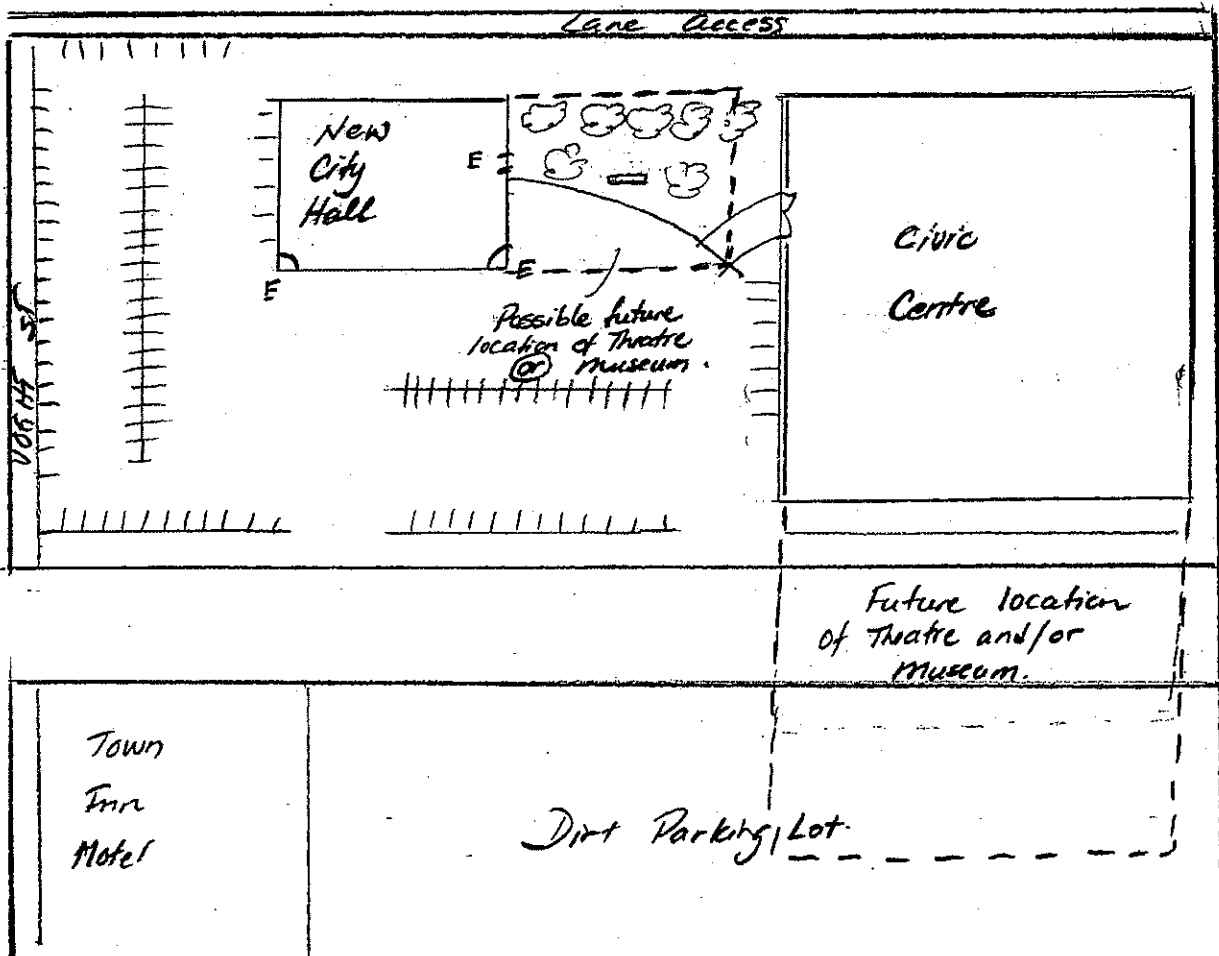 Lane Access
New
City
Hall
E
E
E
Civic
Centre
Possible future
location of Theatre
or museum.
Future location
of Theatre and/or
Museum.
Town
Inn
Motel
Dirt Parking Lot.